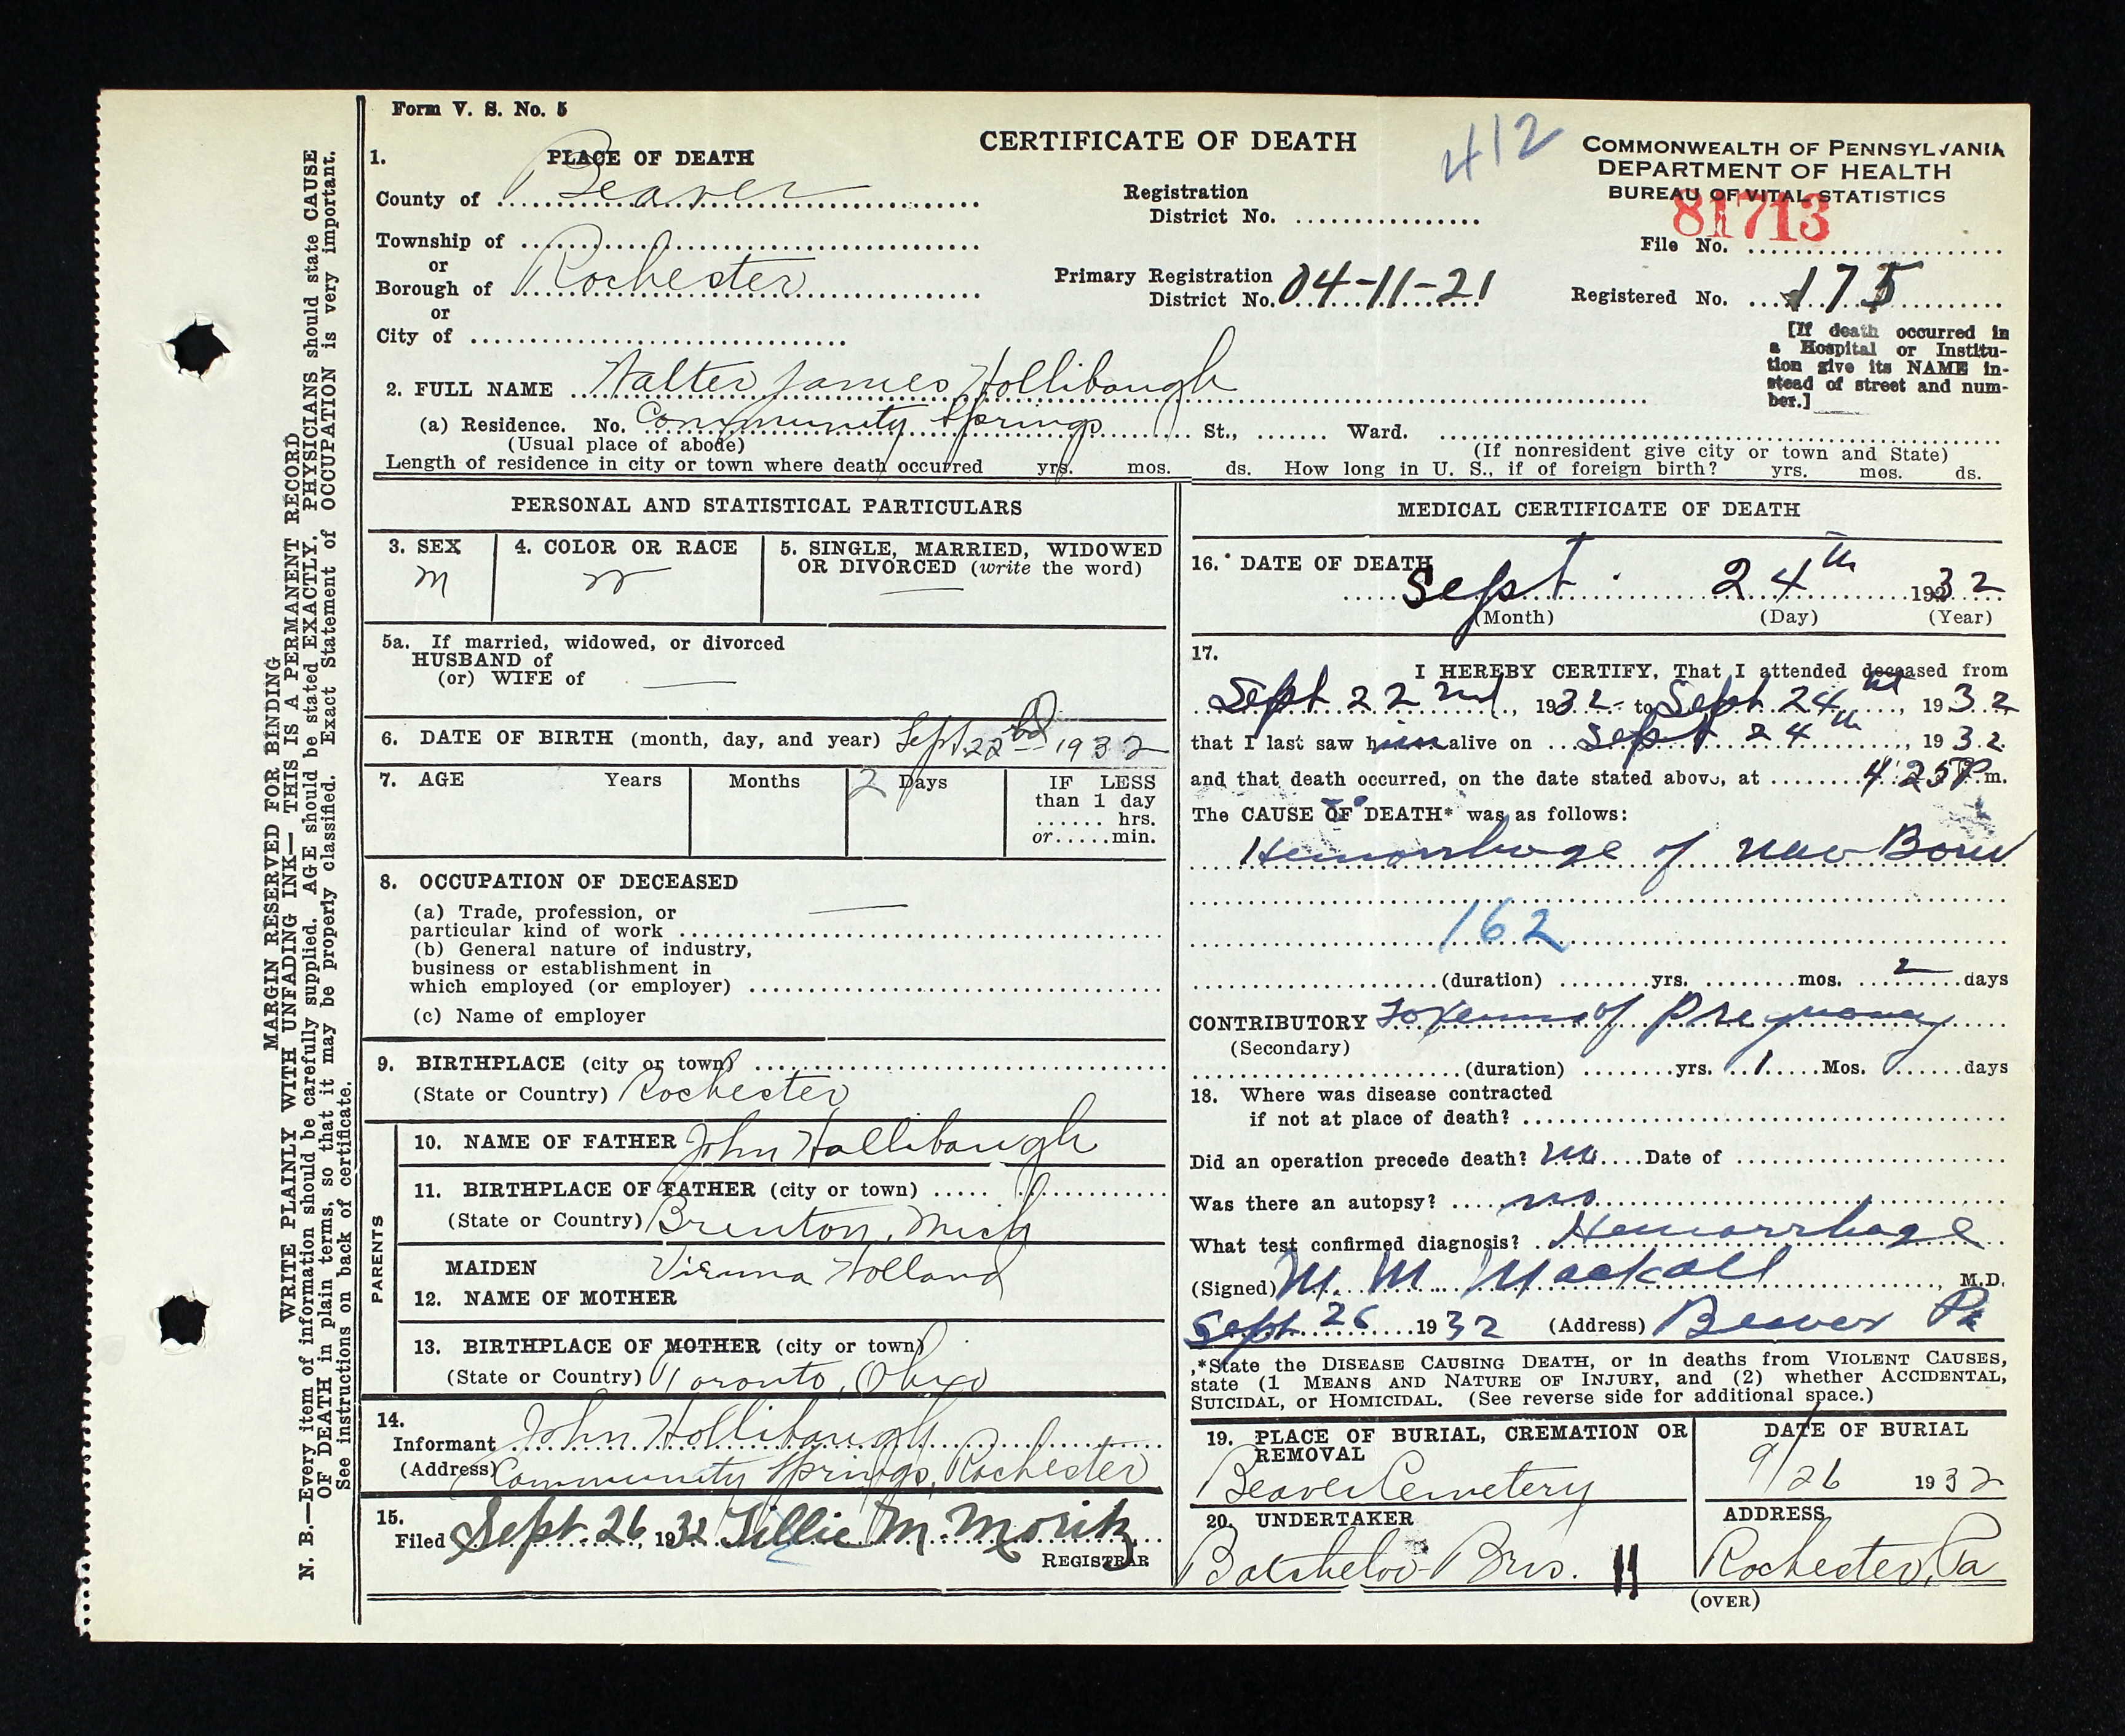 Form V. S. No. 5
CERTIFICATE OF DEATH
412
COMMONWEALTH OF PENNSYLVANIA
DEPARTMENT OF HEALTH
BUREAU OF VITAL STATISTICS
81713
File No.
Registered No. 175
[If death occurred in
a Hospital or Institu-
tion give its NAME in-
stead of street and num-
ber.]
1. PLACE OF DEATH
County of Beaver
Township of
or
Borough of Rochester
or
City of
Registration
District No.
Primary Registration
District No. 04-11-21
2. FULL NAME Walter James Hollibaugh
(a) Residence. No. Community Springs St., Ward.
(Usual place of abode) (If nonresident give city or town and State)
Length of residence in city or town where death occurred yrs. mos. ds. How long in U. S., if of foreign birth? yrs. mos. ds.
PERSONAL AND STATISTICAL PARTICULARS
3. SEX
M
4. COLOR OR RACE
W
5. SINGLE, MARRIED, WIDOWED
OR DIVORCED (write the word)
—
5a. If married, widowed, or divorced
HUSBAND of
(or) WIFE of —
6. DATE OF BIRTH (month, day, and year) Sept. 22 1932
7. AGE Years Months 2 Days
IF LESS
than 1 day
hrs.
or min.
8. OCCUPATION OF DECEASED
(a) Trade, profession, or
particular kind of work —
(b) General nature of industry,
business or establishment in
which employed (or employer)
(c) Name of employer
9. BIRTHPLACE (city or town)
(State or Country) Rochester
PARENTS
10. NAME OF FATHER John Hollibaugh
11. BIRTHPLACE OF FATHER (city or town)
(State or Country) Brenton, Mich
MAIDEN Holland
12. NAME OF MOTHER
13. BIRTHPLACE OF MOTHER (city or town)
(State or Country) Toronto, Ohio
14.
Informant John Hollibaugh
(Address) Community Springs, Rochester
15.
Filed Sept. 26, 1932 Tillie M. Moritz
REGISTRAR
MEDICAL CERTIFICATE OF DEATH
16. DATE OF DEATH
Sept. 24th 1932
(Month) (Day) (Year)
17.
I HEREBY CERTIFY, That I attended deceased from
Sept 22nd, 1932 to Sept 24th, 1932
that I last saw him alive on Sept 24th, 1932
and that death occurred, on the date stated above, at 4:25 P.m.
The CAUSE OF DEATH* was as follows:
Hemorrhage of New Born
162
(duration) yrs. mos. 2 days
CONTRIBUTORY Toxemia of Pregnancy
(Secondary)
(duration) yrs. 1 Mos. days
18. Where was disease contracted
if not at place of death?
Did an operation precede death? no Date of
Was there an autopsy? no
What test confirmed diagnosis? Hemorrhage
(Signed) M. M. Mackall, M.D.
Sept. 26 1932 (Address) Beaver Pa
*State the DISEASE CAUSING DEATH, or in deaths from VIOLENT CAUSES,
state (1 MEANS AND NATURE OF INJURY, and (2) whether ACCIDENTAL,
SUICIDAL, or HOMICIDAL. (See reverse side for additional space.)
19. PLACE OF BURIAL, CREMATION OR
REMOVAL
Beaver Cemetery
DATE OF BURIAL
9/26 1932
20. UNDERTAKER
Batchelor Bros.
ADDRESS
Rochester, Pa
(OVER)
MARGIN RESERVED FOR BINDING
WRITE PLAINLY WITH UNFADING INK— THIS IS A PERMANENT RECORD
N. B.—Every item of information should be carefully supplied. AGE should be stated EXACTLY. PHYSICIANS should state CAUSE
OF DEATH in plain terms, so that it may be properly classified. Exact Statement of OCCUPATION is very important.
See instructions on back of certificate.